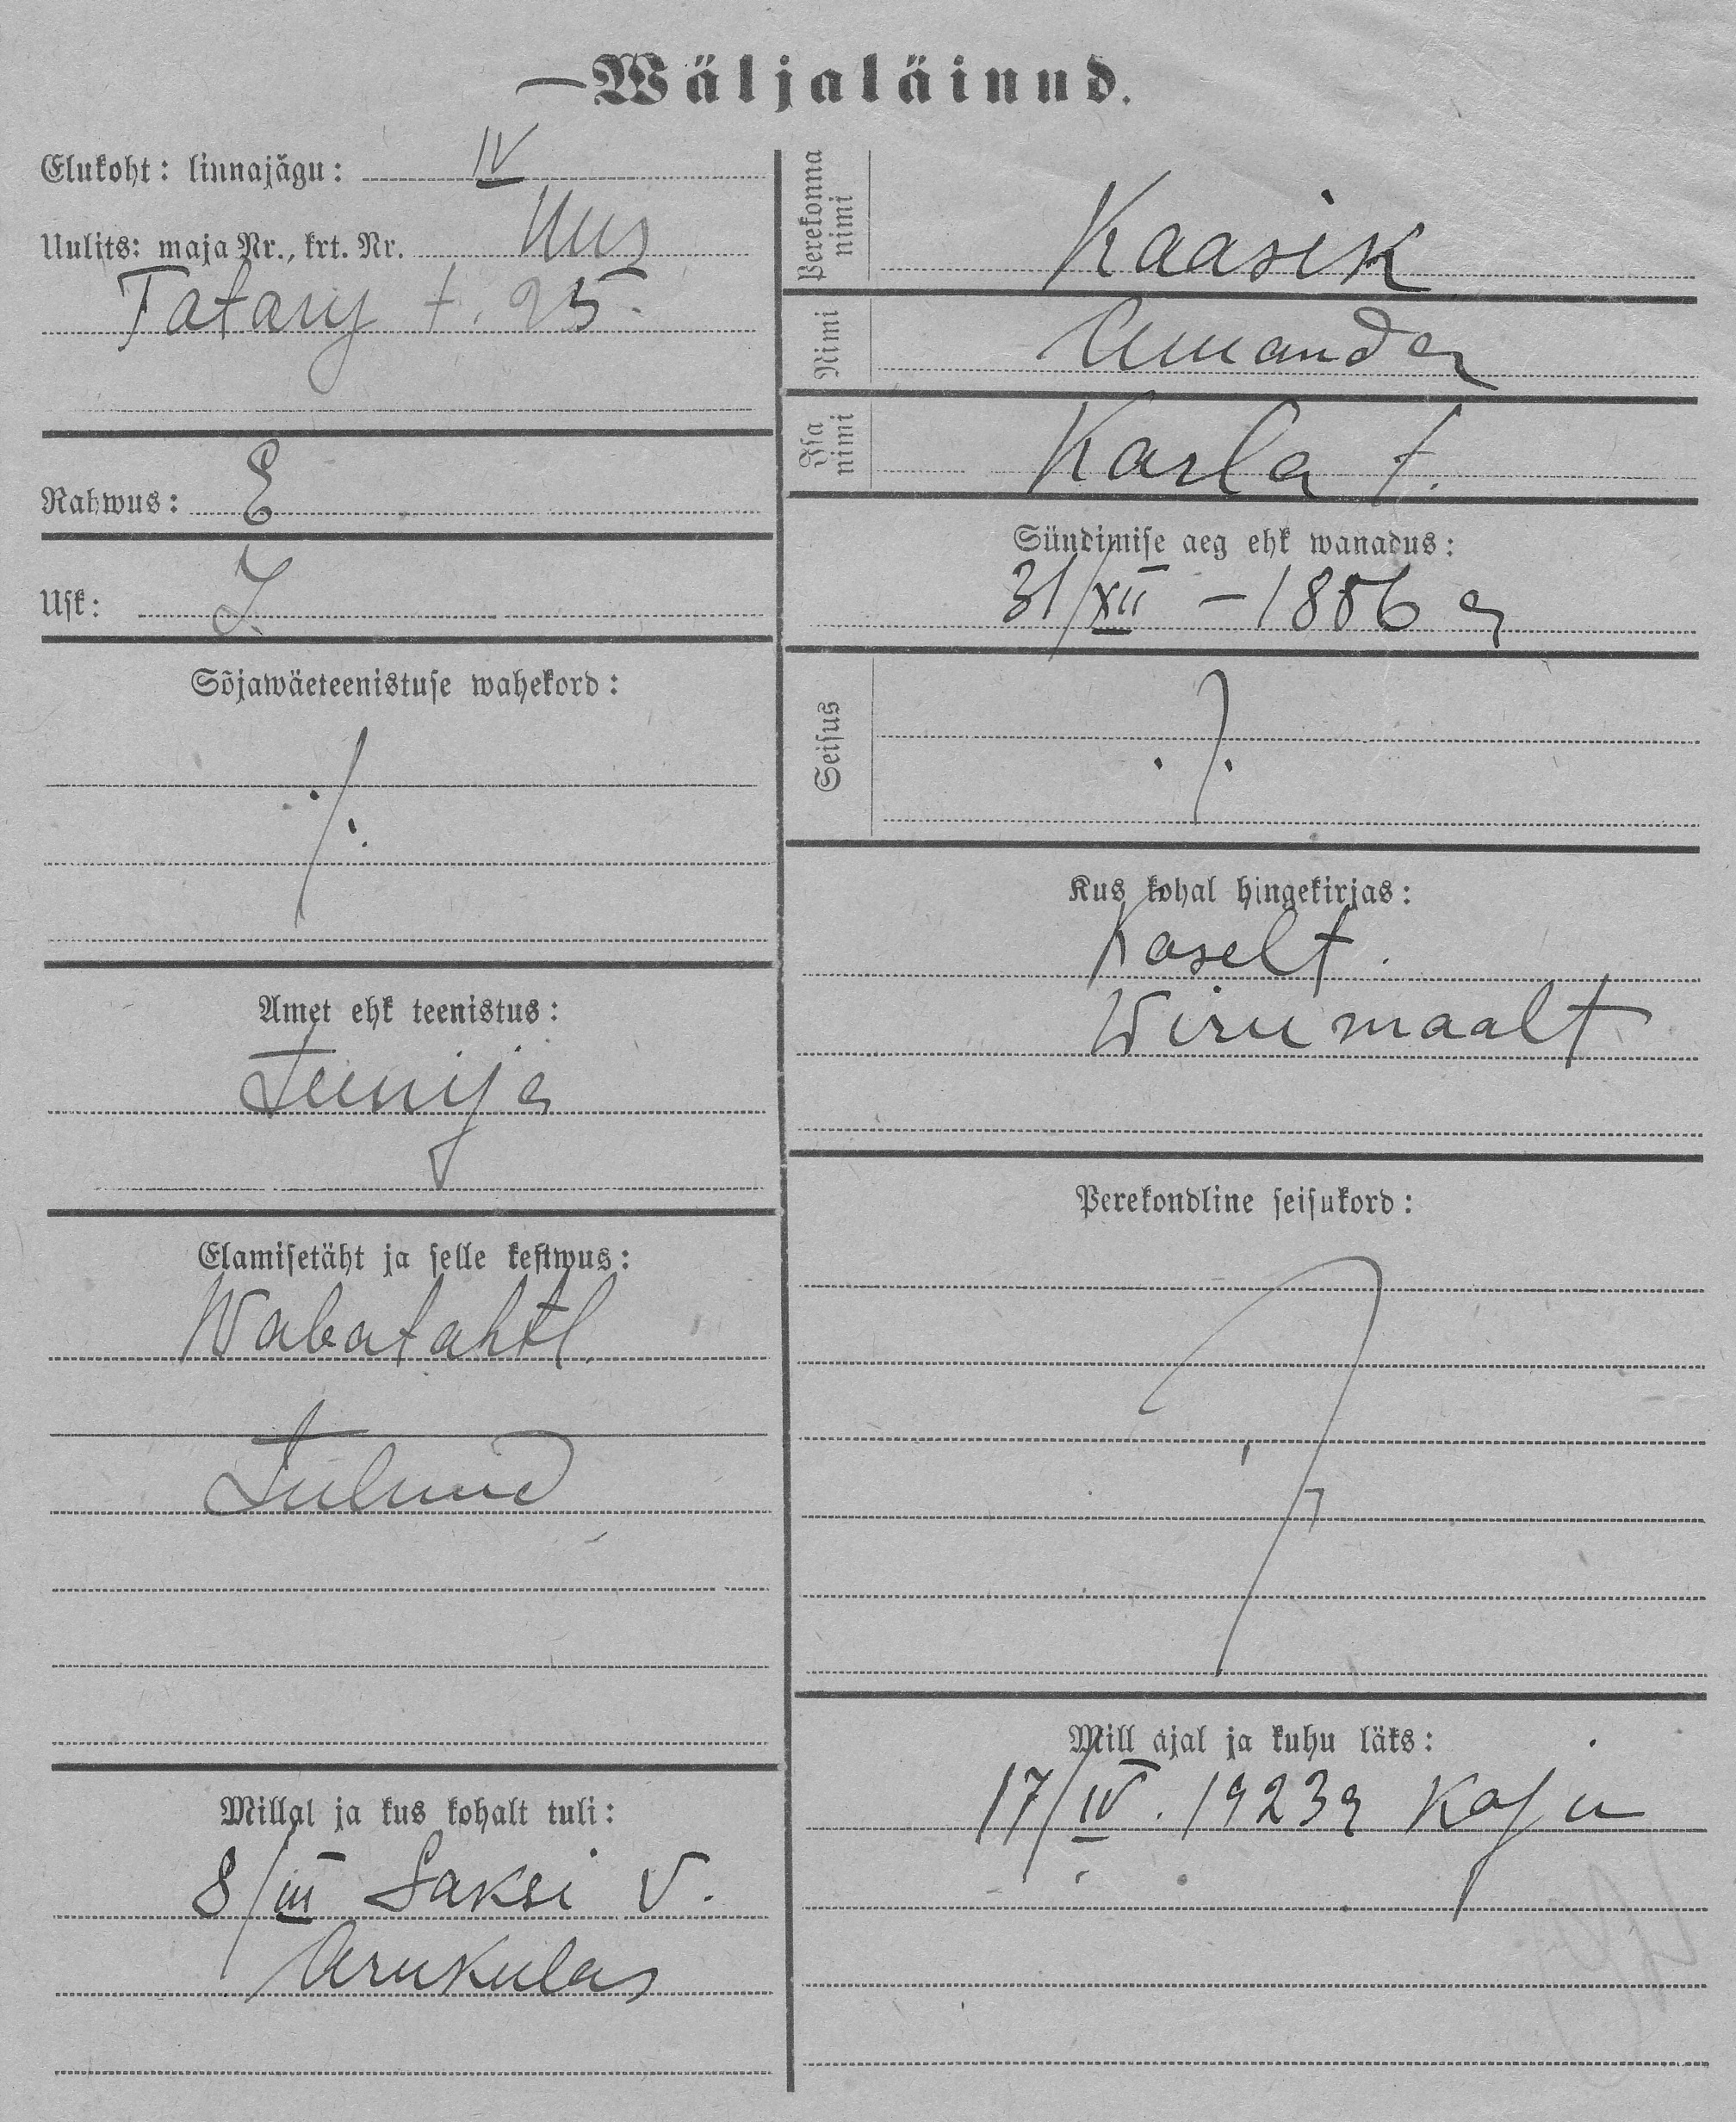 Wäljaläinud.
Elukoht: linnajägu: IV
Uulits: maja Nr., krt. Nr. Uus
Tatary t. 25.
Rahwus: E
Usk: L
Sõjawäeteenistuse wahekord:
Amet ehk teenistus:
Teenija
Elamisetäht ja selle kestwus:
Wabatahtl.
Tulnud
Millal ja kus kohalt tuli:
8/III Saksi V.
Arukulas
Perekonna nimi
Kaasik
Nimi
Amanda
Isa nimi
Karla t.
Sündimise aeg ehk wanadus:
31/XII – 1886 a
Seisus
Kus kohal hingekirjas:
Koselt.
Wirumaalt
Perekondline seisukord:
Mill ajal ja kuhu läks:
17/IV. 1923 a Koju